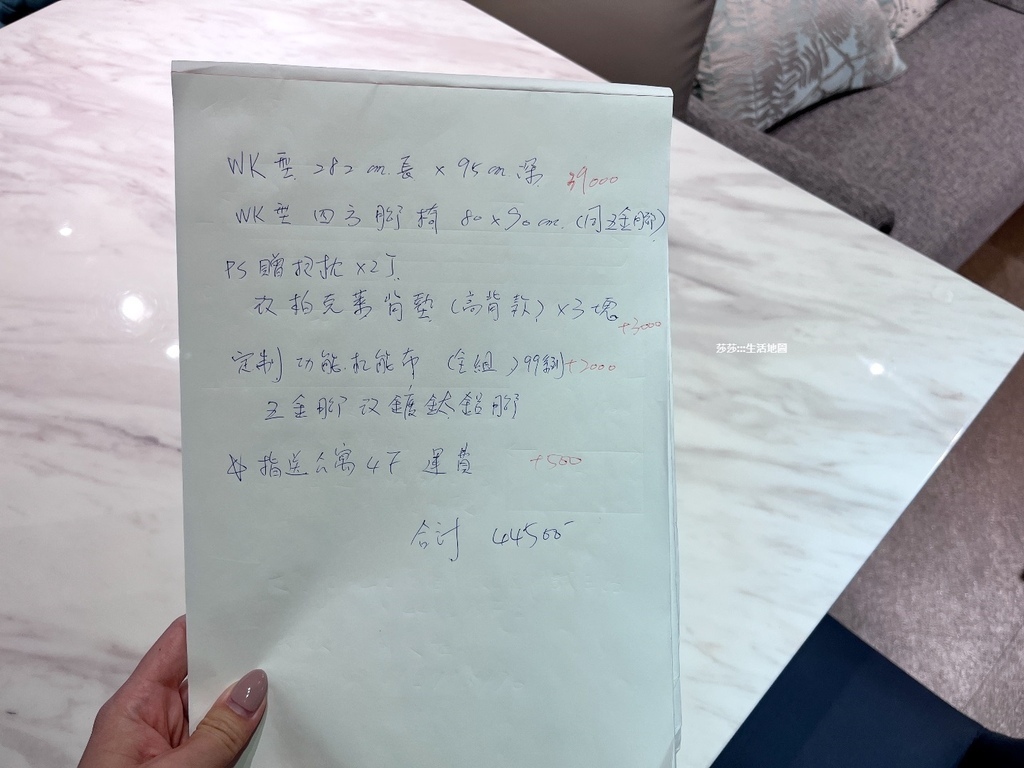 WK型 282cm長 x 95cm深 39000
WK型 四方腳椅 80 x 90cm (同五金腳)
PS 贈抱枕 x2丁
衣柏克萊背墊 (高背款) x3塊
+3000
定制 功能.机能布 (全組) 99系列 +2000
五金腳改鍍鈦鋁腳
指送公寓4F 運費 +500
合计 44500
莎莎:::生活地圖